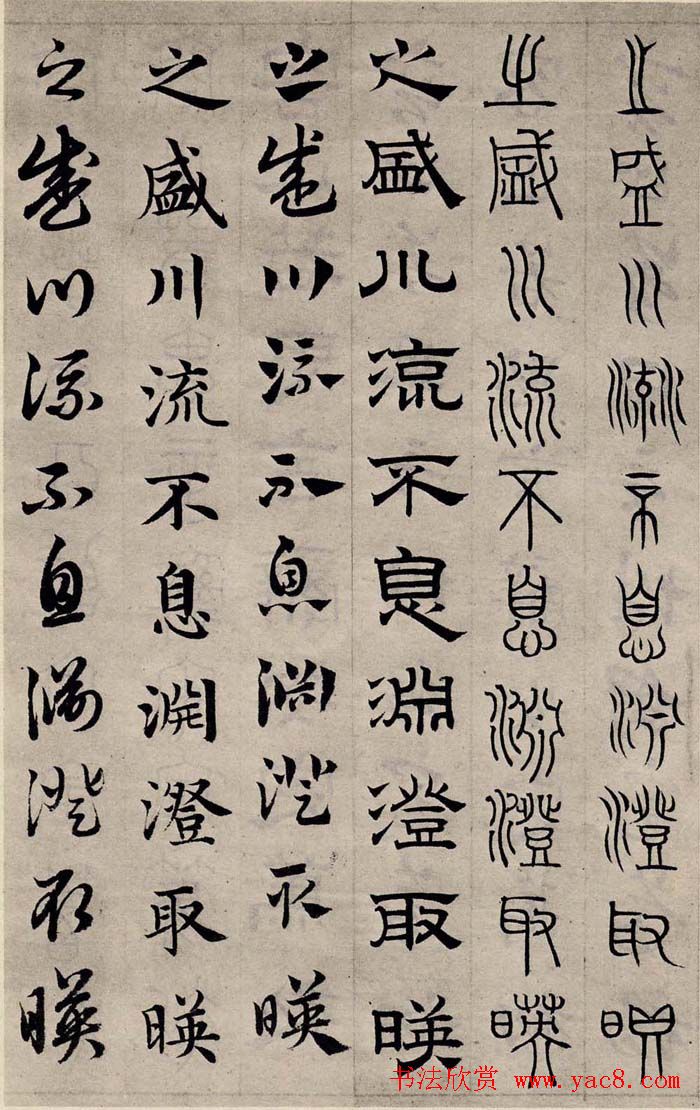 之盛川流不息渊澄取暎
之盛川流不息渊澄取暎
之盛川流不息淵澄取暎
之盛川流不息渊澄取暎
之盛川流不息渊澄取暎
之盛川流不息渊澄取暎
书法欣赏 www.yac8.com